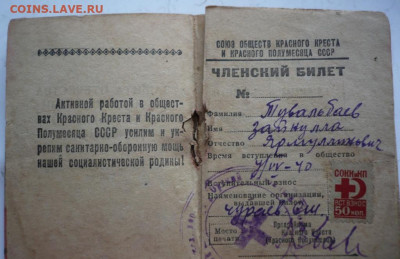 COINS.LAVE.RU
Активной работой в общест-
вах Красного Креста и Красного
Полумесяца СССР усилим и ук-
репим санитарно-оборонную мощь
нашей социалистической родины!
СОЮЗ ОБЩЕСТВ КРАСНОГО КРЕСТА
И КРАСНОГО ПОЛУМЕСЯЦА СССР
ЧЛЕНСКИЙ БИЛЕТ
№
Фамилия Тувальбаев
Имя Зайнулла
Отчество
Время вступления в общество
Вступительный взнос
Наименование организации,
выдавшей билет
Место
печати
Красного Креста
(Красного Полумесяца)
СОКК и КП
50 коп